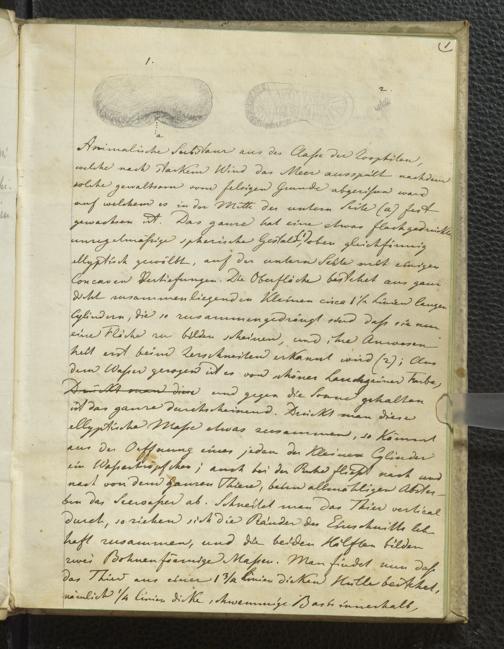 1
1.
2.
a
Animalische Substanz aus der Classe der Zoophiten,
welche nach starkem Wind das Meer ausspült nachdem
solche gewaltsam vom felsigen Grunde abgerissen ward
auf welchem es in der Mitte der untern Seite (a) fest
gewachsen ist. Das ganze hat eine etwas flachgedrückte
unregelmäßige sphärische Gestalt, oben gleichförmig
ellyptisch gewölbt, auf der untern Seite mit einigen
Concaven Vertiefungen. Die Oberfläche bestehet aus ganz
dicht zusammenliegenden Kleinen circa 1½ Linien langen
Cylindern, die so zusammengedrängt sind daß sie nur
eine Fläche zu bilden scheinen, und ihre Anwesen-
heit erst beim Zerschneiden erkannt wird (2); Aus
dem Wasser gezogen ist es von schöner Lauchgrüner Farbe,
Drückt man diese und gegen die Sonne gehalten
ist das ganze durchscheinend. Drückt man diese
ellyptische Masse etwas zusammen, so kömmt
aus der Oeffnung eines jeden der Kleinen Cylinder
ein Wassertröpfchen; auch bei der Ruhe fließt nach und
nach von dem ganzen Thiere, beim allmähligen Abster-
ben das Seewasser ab. Schneidet man das Thier vertical
durch, so ziehen sich die Ränder des Einschnitts leb-
haft zusammen, und die beiden Hälften bilden
zwei Bohnenförmige Massen. Man findet nun daß
das Thier aus einer 1¾ Linien dicken Hülle bestehet,
nämlich ¼ Linien dicke, schwammige Basts innerhalb,